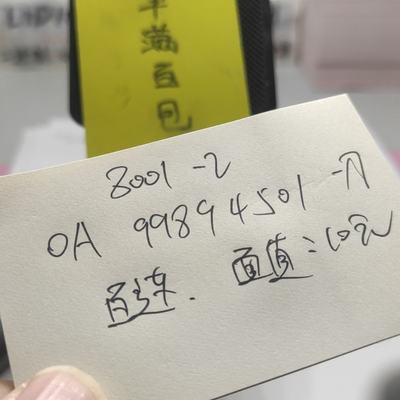 满百包
8001-2
OA 99894501-
百连. 面值:10元